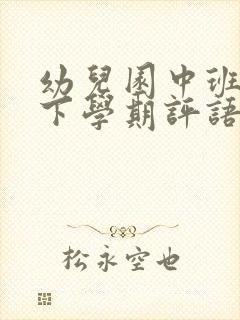 幼兒園中班
下學期評語
松永空也